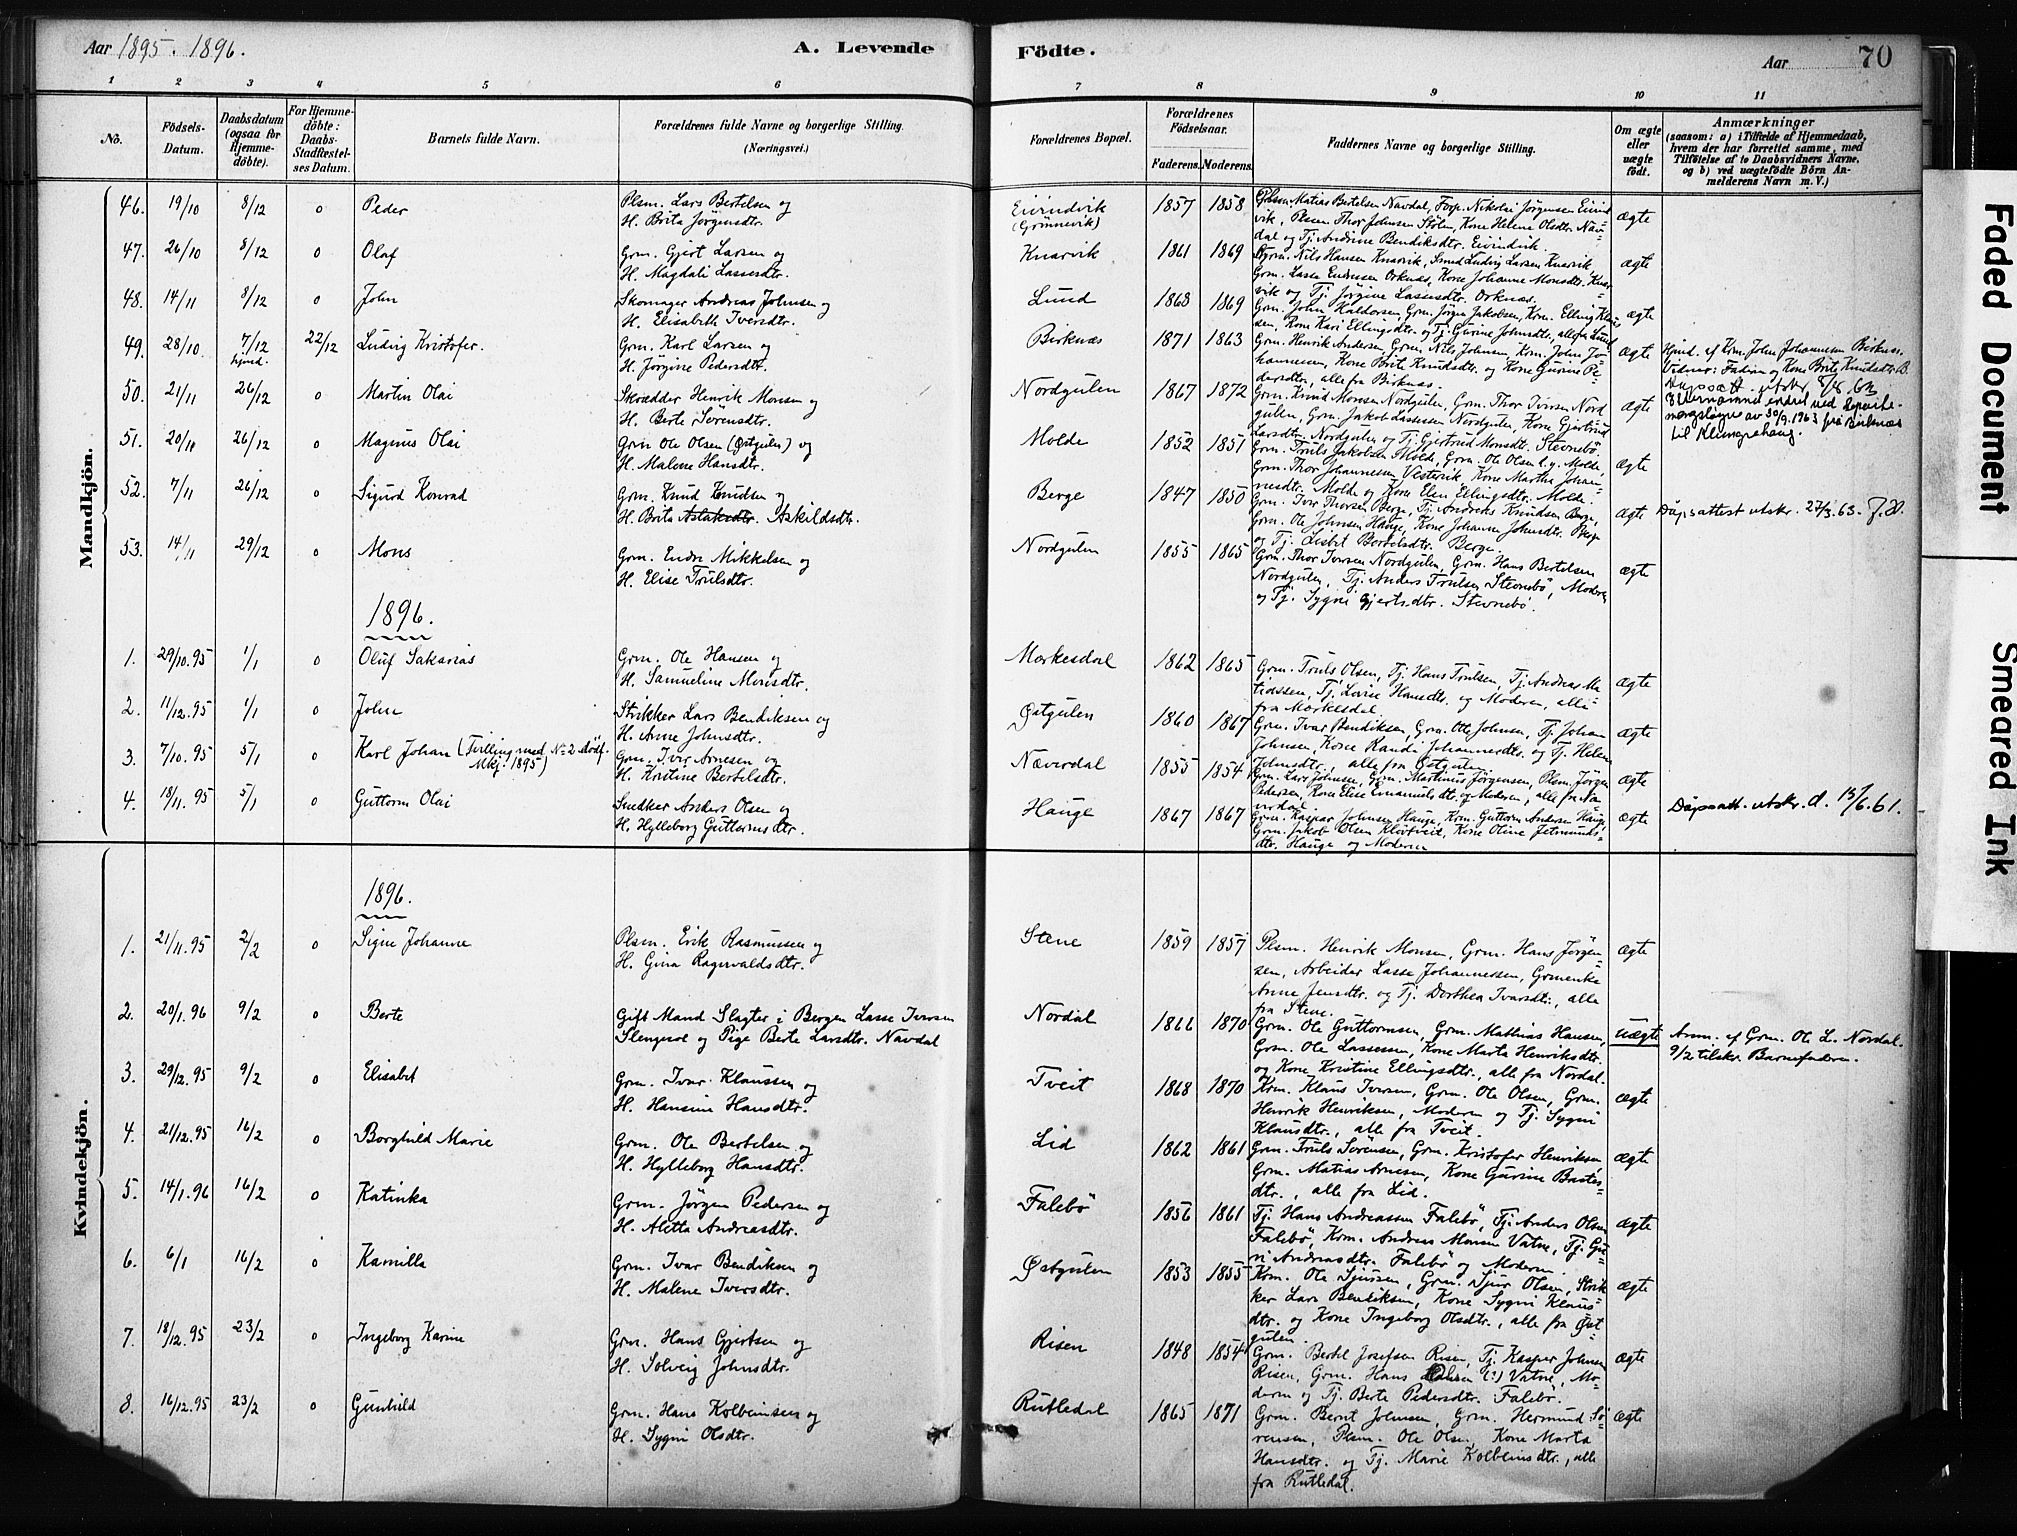 Aar 1895. 1896.
A. Levende Födte.
Aar
70
1 2 3 4 5 6 7 8 9 10 11
No.
Födsels-Datum.
Daabsdatum (ogsaa för Hjemme-döbte).
For Hjemme-döbte: Daabs-Stadfæstelses Datum.
Barnets fulde Navn.
Forældrenes fulde Navne og borgerlige Stilling. (Næringsvei.)
Forældrenes Bopæl.
Forældrenes Födselsaar.
Faderens. Moderens.
Faddernes Navne og borgerlige Stilling.
Om ægte eller uægte födt.
Anmærkninger
(saasom: a) i Tilfælde af Hjemmedaab,
hvem der har forrettet samme, med
Tilföielse af to Daabsvidners Navne,
og b) ved uægtefödte Börn An-
melderens Navn m. V.)
Mandkjön.
46. 19/10 8/12 o Peder Plsm. Lars Bertelsen og
H. Brita Jørgensdtr.
Eivindvik (Grönnevik) 1857 1858
Matias Bertelsen Navdal, Forp. Nikolai Jørgensen Eivind
vik, Plsm Thor Johnsen Stölen, Kone Helene Olsdtr. Nav-
dal og Tj. Andrine Bendiksdtr. Eivindvik.
ægte
47. 26/10 8/12 o Olaf Grm. Gjert Larsen og
H. Magdali Lassesdtr.
Knarvik 1861 1869
Grm. Nils Hansen Knarvik, Smed Ludvig Larsen Knarvik,
Grm. Lasse Endresen Orknæs, Kone Johanne Monsdtr. Knar-
vik og Tj. Jörgine Lassesdtr. Orknæs.
ægte
48. 14/11 8/12 o John Skomager Andreas Johnsen og
H. Elisabeth Iversdtr.
Lund 1863 1869
Grm. John Haldorsen, Grm. Jörgen Jakobsen, Krm. Elling Klaus
sen, Kone Kari Ellingsdtr. og Tj. Gurine Johnsdtr., alle fra Lund
ægte
49. 28/10 7/12 hjmd. 22/12 Ludvig Kristofer. Grm. Karl Larsen og
H. Jörgine Pedersdtr.
Birknæs 1871 1863
Grm. Henrik Andersen, Grm. Nils Johnsen, Krm. John Jo-
hannesen, Kone Brite Knudsdtr. og Kone Gurine Pe-
dersdtr., alle fra Birknæs.
ægte
Hjmd. af Krm. John Johannesen Birknæs.
Vidner: Faderen og Kone Brite Knudsdtr. B.
50. 21/11 26/12 o Martin Olai Skrædder Henrik Monsen og
H. Berte Sörensdtr.
Nordgulen 1867 1872
Grm. Knud Monsen Nordgulen, Grm. Thor Iversen Nord
gulen, Grm. Jakob Lassesen Nordgulen, Kone Gjertrud
Larsdtr. Nordgulen og Tj. Gjertrud Monsdtr. Stevnebö.
ægte
Etternamnet endret ved
av 30/9.1963 frå Birknes
til
51. 20/11 26/12 o Magnus Olai Grm Ole Olsen (Østgulen) og
H. Malene Hansdtr.
Molde 1852 1851
Grm. Truls Jakobsen Molde, Grm. Ole Olsen l.y. Molde,
Grm. Thor Johannessen Vesterik, Kone Martha Johan-
nesdtr. Molde og Kone Elen Ellingsdtr. Molde.
ægte
52. 7/11 26/12 o Sigurd Konrad Grm. Knud Knudsen og
H. Brita Aslaksdtr. Askildsdtr.
Berge 1847 1850
Grm. Iver Thorsen Berge, Tj. Andreas Knudsen Berge,
Grm. Ole Johnsen Hauge, Kone Johanne Johnsdtr.
og Tj. Lisbet Bertelsdtr. Berge.
ægte
Dåpsattest utskr. 27/3.63.
53. 14/11 29/12 o Mons Grm. Endre Mikkelsen og
H. Elise Trulsdtr.
Nordgulen 1855 1865
Grm. Thor Iversen Nordgulen, Grm. Hans Bertelsen
Nordgulen, Tj. Anders Trulsen Stevnebö, Moderen
og Tj. Sygni Gjertsdtr. Stevnebö.
ægte
1896.
1. 29/10.95 1/1 o Oluf Sakarias Grm. Ole Hansen og
H. Samueline Monsdtr.
Mørkesdal 1862 1865
Grm. Truls Olsen, Tj. Hans Trulsen, Tj. Andreas Ma
tiassen, Tj. Lovise Hansdtr. og Moderen, alle
fra Mørkesdal.
ægte
2. 11/12.95 1/1 o John Strikker Lars Bendiksen og
H. Anne Johnsdtr.
Østgulen 1860 1867
Grm. Ivar Bendiksen, Grm. Ole Johnsen, Tj. Johan
Johnsen, Kone Randi Johannesdtr. og Tj. Helene
Johnsdtr., alle fra Østgulen.
ægte
3. 7/10.95 5/1 o Karl Johan (Tvilling med No 2 dödf.
Mkj. 1895) Grm. Iver Arnesen og
H. Kristine Bertelsdtr.
Næverdal 1855 1854
Grm. Lars Johnsen, Grm. Martinus Jörgensen, Plsm. Jörgen
Pedersen, Kone Elise Emanuelsdtr. og Moderen, alle fra Næ
verdal.
ægte
4. 18/11.95 5/1 o Guttorm Olai Snedker Anders Olsen og
H. Hylleborg Guttormsdtr.
Hauge 1867 1867
Grm. Kaspar Johnsen Hauge, Krm. Guttorm Andersen Hauge,
Grm. Jakob Olsen Klöftveit, Kone Oline Jetmunds-
dtr. Hauge og Moderen
ægte
Dåpsatt. utskr. d. 13/6.61.
Kvindekjön.
1896.
1. 21/11.95 2/2 o Signe Johanne Plsm. Erik Rasmussen og
H. Gina Ragnvaldsdtr.
Stene 1859 1857
Plsm. Henrik Monsen, Grm. Hans Jörgen-
sen, Arbeider Lasse Johannessen, Grmenke
Anne Jensdtr. og Tj. Dorthea Ivarsdtr., alle
fra Stene.
ægte
2. 20/1.96 9/2 o Berte Gift Mand Slagter i Bergen Lasse Iversen
Slengesol og Pige Berte Larsdtr. Navdal
Nordal 1866 1870
Grm. Ole Guttormsen, Grm. Mathias Hansen,
Grm. Ole Lassesen, Kone Marta Henriksdtr.
og Kone Kristine Ellingsdtr., alle fra Nordal.
uægte
Anm. af Grm. Ole L. Nordal.
9/2 tilskr. Barnefaderen.
3. 29/12.95 9/2 o Elisabet Grm. Ivar Klaussen og
H. Hansine Hansdtr.
Tveit 1868 1870
Krm. Klaus Iversen, Grm. Ole Olsen, Grm.
Henrik Henriksen, Moderen og Tj. Sygni
Klausdtr., alle fra Tveit.
ægte
4. 21/12.95 16/2 o Borghild Marie Grm. Ole Bertelsen og
H. Hylleborg Hansdtr.
Lid 1862 1861
Grm. Truls Sörensen, Grm. Kristofer Henriksen
Grm. Matias Arnesen, Kone Gurine Bastes-
dtr., alle fra Lid.
ægte
5. 14/1.96 16/2 o Katinka Grm. Jörgen Pedersen og
H. Aletta Andreasdtr.
Falebö 1856 1861
Tj. Hans Andreassen Falebö, Tj. Anders Olsen
Falebö, Krm. Andreas Monsen Vatne, Tj. Gu-
ri Andreasdtr. Falebö og Moderen.
ægte
6. 6/1 16/2 o Kamilla Grm. Ivar Bendiksen og
H. Malene Iversdtr.
Østgulen 1853 1855
Krm. Ole Sjursen, Grm. Sjur Olsen, Strik
ker Lars Bendiksen, Kone Sygni Klaus-
dtr. og Kone Ingeborg Olsdtr., alle fra Øst
gulen.
ægte
7. 18/12.95 23/2 o Ingeborg Karine Grm. Hans Gjertsen og
H. Solveig Johnsdtr.
Risen 1848 1854
Grm. Bertel Josefsen Risen, Tj. Kasper Johnsen
Risen, Grm. Hans Olsen (?) Vatne, Mo-
deren og Tj. Berte Pedersdtr. Falebö.
ægte
8. 16/12.95 23/2 o Gunhild Grm. Hans Kolbeinsen og
H. Sygni Olsdtr.
Rutledal 1865 1871
Grm. Bernt Johnsen, Grm. Hermund Sö-
rensen, Plsm. Ole Olsen, Kone Marta
Hansdtr. og Tj. Marie Kolbeinsdtr., alle
fra Rutledal.
ægte
Faded Document
Smeared Ink